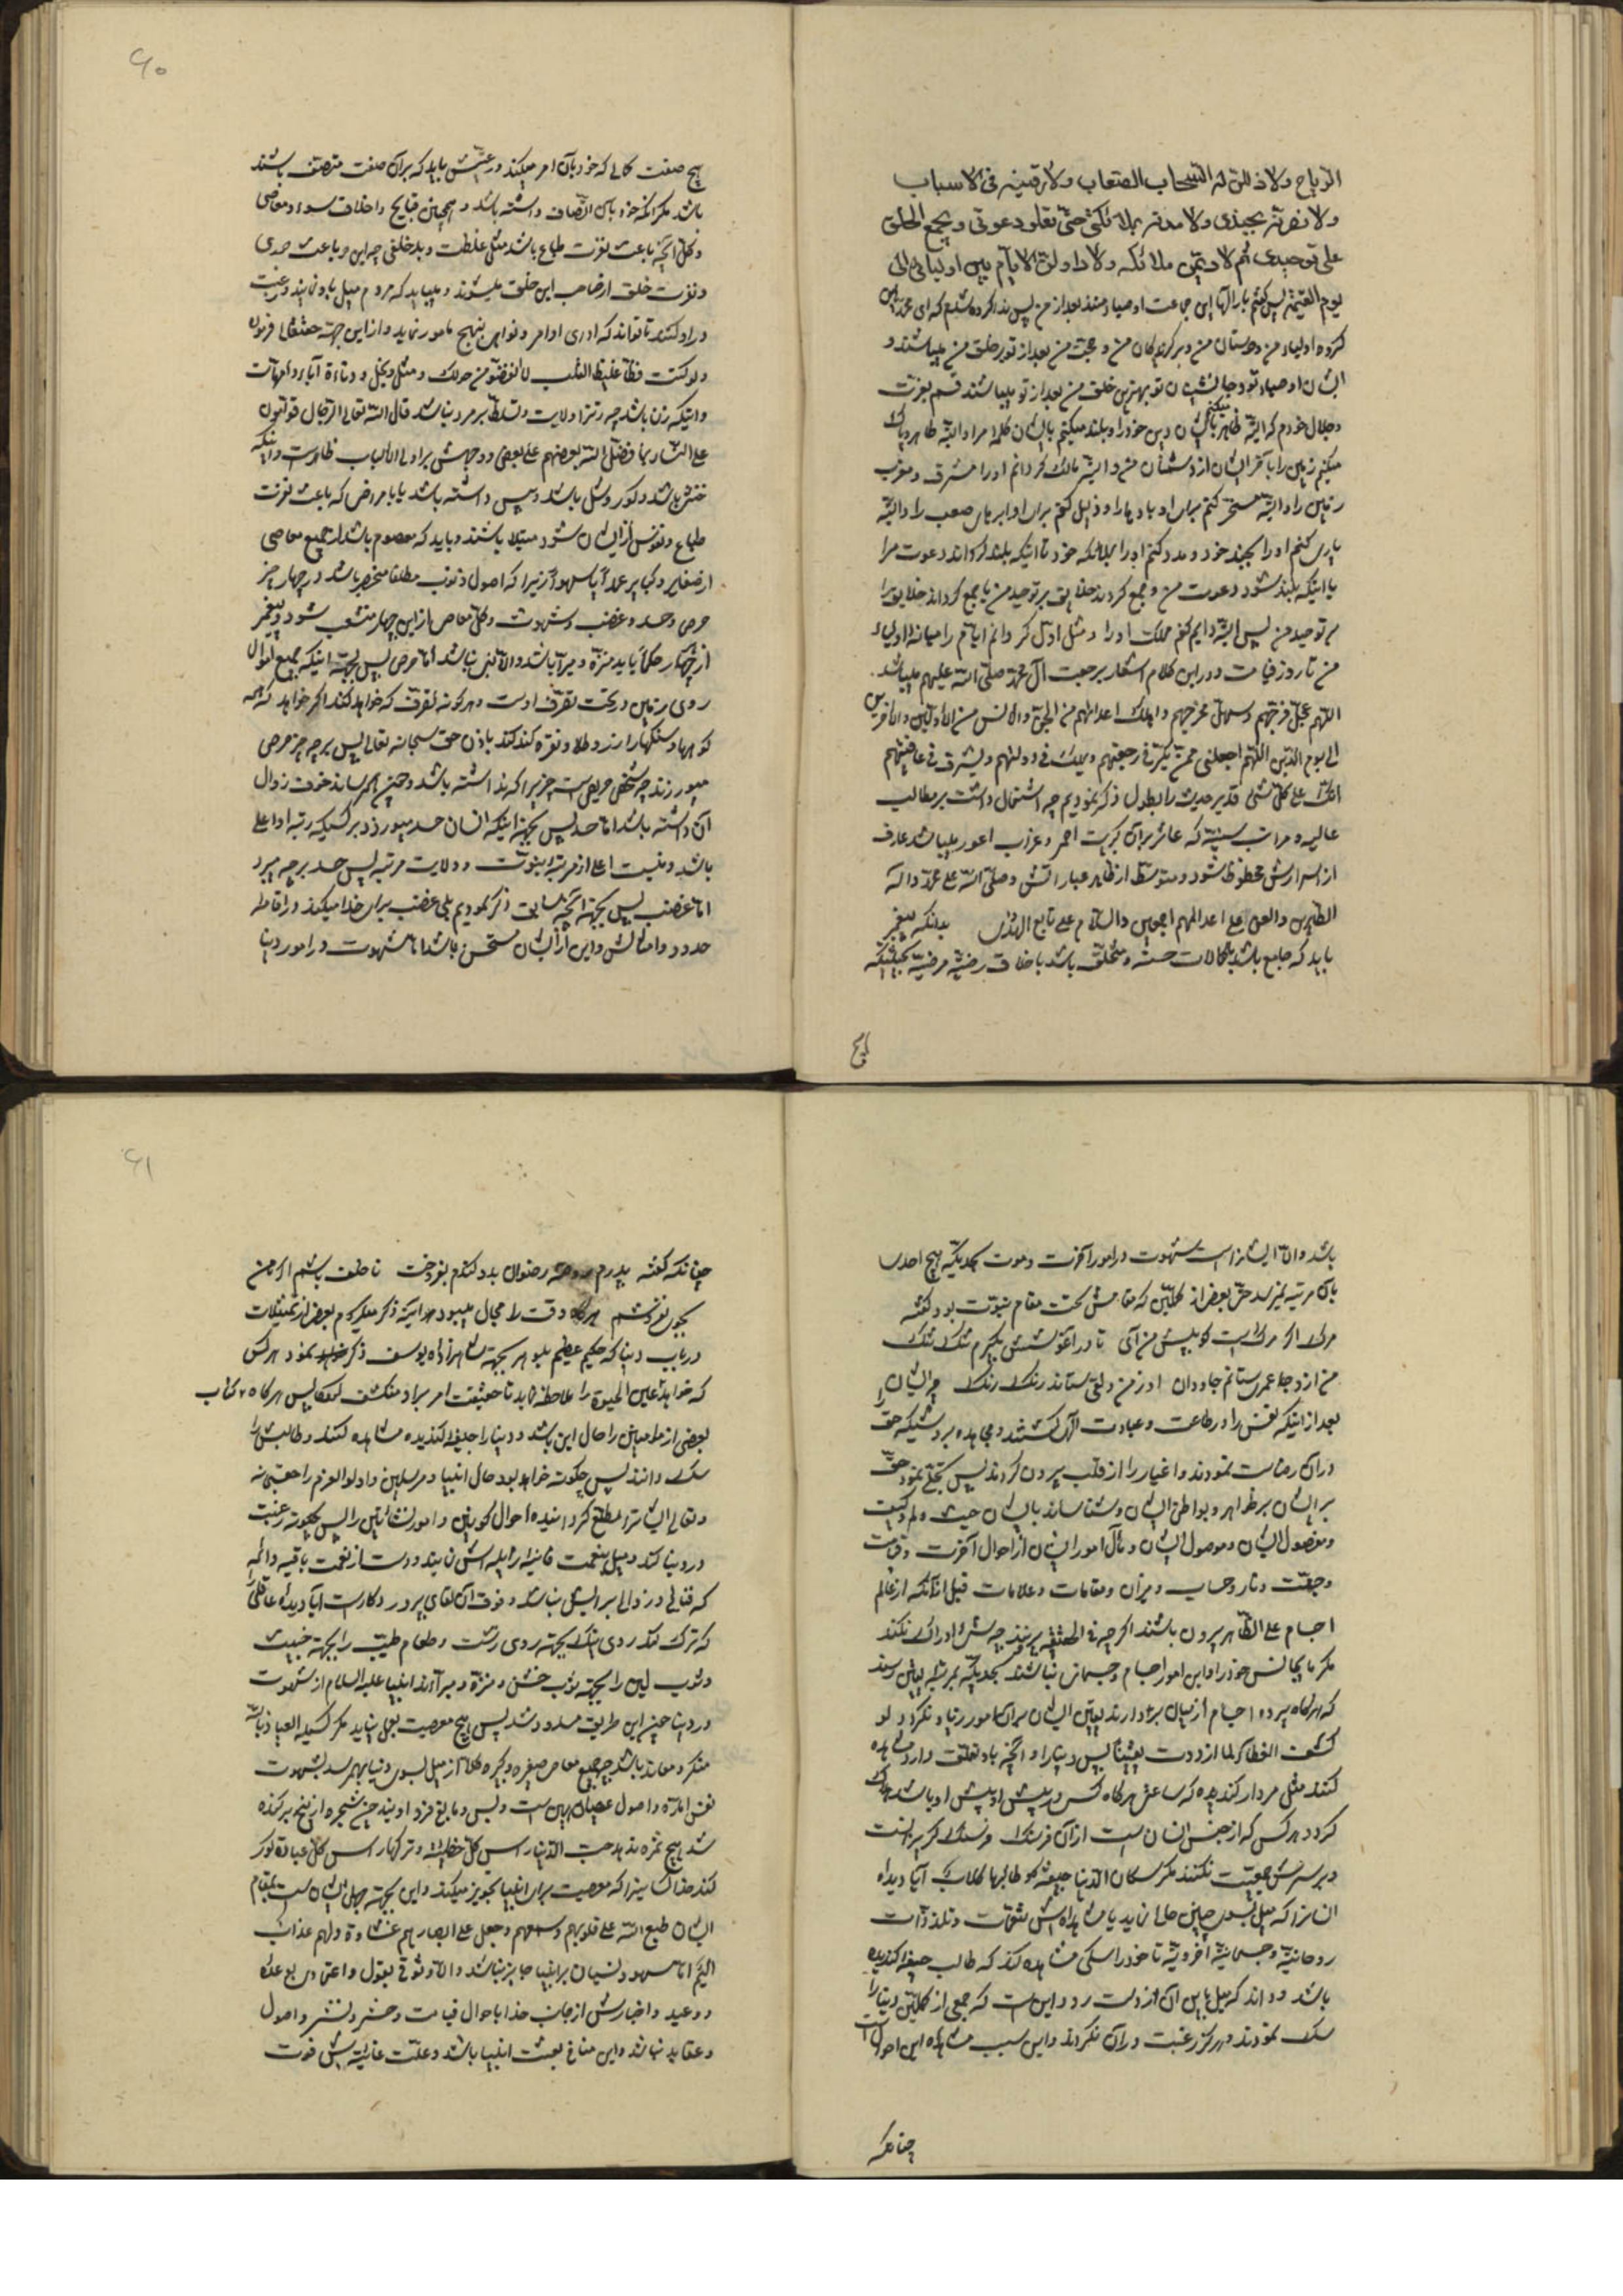 الریاح ولاذللن له السحاب الصعاب ولارقینه فی الاسباب
ولانصرنه بجندی ولامدنه بملائکتی حتی تعلو دعوتی ویجمع الخلق
علی توحیدی ثم لادیمن ملکه ولاداولن الایام بین اولیائی الی
یوم القیمة پس گفتم بارالها این جماعت اوصیاء منند بعد از من پس ندا کرده شدم که ای محمد این
گروه اولیاء من و دوستان من و برگزیدگان من و حجت من بعد از تو بر خلق من میباشند و
ایشان اوصیاء تو و جانشینان تو بهترین خلق من بعد از تو میباشند قسم بعزت
و جلال خودم که البته ظاهر میکنم بایشان دین خود را و بلند میکنم بایشان کلمه مرا و البته طاهر و پاک
میکنم زمین را بآخر ایشان از دشمنان من و البته مالک گردانم او را مشرق و مغرب
زمین را و البته مسخر کنم برای او بادها را و ذلیل کنم برای او ابرهای صعب را و البته
یاری کنم او را بجند خود و مدد کنم او را بملائکه خود تا اینکه بلند گرداند دعوت مرا
یا اینکه بلند شود دعوت من و جمع گردند خلایق بر توحید من یا جمع گرداند خلایق را
بر توحید من پس البته دایم کنم ملک او را و مثل اول گردانم ایام را میانه اولیاء
من تا روز قیامت و در این کلام اشعار برجعت آل محمد صلی الله علیهم میباشد
اللهم عجل فرجهم وسهل مخرجهم واهلک اعدائهم من الجن والانس من الاولین والاخرین
الی یوم الدین اللهم اجعلنی ممن یکر فی رجعتهم ویملک فی دولتهم ویشرف فی عافیتهم
انک علی کل شئی قدیر حدیث را بطول ذکر نمودیم چه اشتمال داشت بر مطالب
عالیه و مراتب سنیه که عاثر بر آن کبریت احمر و غراب اعور میباشد عارف
از اسرارش محظوظ شود و متوسط از ظاهر عباراتش وصلی الله علی محمد واله
الطاهرین والعن علی اعدائهم اجمعین والسلام علی تابع الهدی بدانکه پیغمبر
باید که جامع باشد بکمالات حسنه و متخلق باشد باخلاق رضیه مرضیه بحیثیتیکه
هیچ
۶۰
هیچ صفت کمالی که خود بآن امر میکند و رعیتش باید که بر آن صفت متصف باشند
باشد مگر آنکه خود بآن اتصاف داشته باشد و همچنین قبایح و اخلاق سوء و معاصی
و کل آنچه باعث نفرت طباع باشد مثل غلظت و بدخلقی چه این و باعث دوری
و نفرت خلق از صاحب این خلق میشوند و میباید که مردم میل باو نمایند و رغبت
در او کنند تا تواند که ادای اوامر و نواهی بنهج مامور نماید و از این جهة حقتعالی فرمود
ولو کنت فظا غلیظ القلب لانفضوا من حولک و مثل بخل و دنائة آباء و امهات
و اینکه زن باشد چه زن را ولایت و تسلط بر مرد نباشد قال الله تعالی الرجال قوامون
علی النساء بما فضل الله بعضهم علی بعض و وجهش بر اولی الالباب ظاهر است و اینکه
خنثی باشد و کور و شل باشد و پیس داشته باشد یا بامراضی که باعث نفرت
طباع و نفوس از ایشان شود مبتلا باشند و باید که معصوم باشد از جمیع معاصی
از صغایر و کبایر عمدا یا سهوا زیرا که اصول ذنوب مطلقا منحصر باشد در چهار چیز
حرص و حسد و غضب و شهوت و کل معاصی از این چهار منشعب شود و پیغمبر
از چهار حکما باید منزه و مبرا باشد والا نبی نباشد اما حرص پس بجهة اینکه جمیع اموال
روی زمین در تحت تصرف اوست و هرگونه تصرف که خواهد کند اگر خواهد که همه
کوهها و سنگها را زر و طلا و نقره کند کند باذن حق سبحانه تعالی پس بر چه چیز حرص
میورزد چه شخص حریص است چیزیرا که نداشته باشد و چون بهمرساند خوف زوال
آن داشته باشد اما حسد پس بجهة اینکه انسان حسد میورزد بر کسیکه رتبه او اعلی
باشد و نیست اعلی از مرتبه نبوت و ولایت مرتبه پس حسد بر چه میبرد
اما غضب پس بجهة آنچه سابق ذکر نمودیم بلی غضب برای خدا میکند در اقامه
حدود و امثالش و این از ایشان مستحسن باشد اما شهوت در امور دنیا
باشد والا ایشانراست شهوت در امور آخرت و موت بحدیکه هیچ احدی
بآن مرتبه نمیرسد حتی بعض از کملین که مقامش تحت مقام نبوت بود گفته
مرگ اگر مرد است گو پیش من آی تا در آغوشش بگیرم تنگ تنگ
من از او جانی ستانم جاودان او ز من دلقی ستاند رنگ رنگ چه ایشان را
بعد از اینکه نفس را در طاعت و عبادت الهی کشتند و مجاهده بر دشمنیکه حق
در آن رضاست نمودند و اغیار را از قلب بیرون کردند پس تجلی نمود حق
بر ایشان بر ظواهر و بواطن ایشان و شناساند بایشان حیث و لم و کیف
و مفصول ایشان و موصول ایشان و مآل امور ایشان از احوال آخرت و قیامت
و جنت و نار و حساب و میزان و مقامات و علامات قبل از آنکه از عالم
اجسام علی الظاهر بیرون باشند اگرچه فی الحقیقه بیرونند چه شی ادراک نکند
مگر مایجانس خود را و این امور اجسام و جسمانی نباشند بحدیکه بمرتبه یقین رسند
که هرگاه پرده اجسام از میان بردارند یقین ایشان بر آن امور زیاد نگردد لو
کشف الغطاء لما ازددت یقینا پس دنیا را و آنچه باو تعلق دارد مشاهده
کنند مثل مردار گندیده که ساعتی هرگاه کس در پیش او باشد هلاک
گردد هر کس که از جنس انسان است از آن فرسنگ فرسنگ گریزانست
و بر سرش جمعیت نکنند مگر سگان الدنیا جیفة و طالبها کلاب آیا دیده
انسانرا که میل بسوی چنین حالی نماید با مشاهده اش تنعمات و تلذذات
روحانیه و جسمانیه اخرویه تا خود را سگی مشاهده کند که طالب جیفه گندیده
باشد و داند که میل باین آن از دست رود و این است که جمعی از کملین دنیا را
سک نمودند و هرگز رغبت در آن نکردند و این سبب مشاهده این احوال است
چنانکه
۶۱
چنانکه گفته پدرم روضه رضوان بدو گندم بفروخت ناخلف باشم اگر من
بجوی نفروشم هرگاه وقت را مجال میبود هرآینه ذکر میکردم بعض از تمثیلات
در باب دنیا که حکیم عظیم بلوهر بجهة شاهزاده یوسف ذکر نمود هر کس
که خواهد عین الحیوة را ملاحظه نماید تا حقیقت امر بر او منکشف پس هرگاه
بعضی از را حال این باشد و دنیا را جیفه گندیده مشاهده کنند و طالبش را
سک دانند پس چگونه خواهد بود حال انبیا و مرسلین و اولوالعزم را حقسبحانه
وتعالی ایشانرا مطلع گردانیده احوال کونین و امور نشأتین را پس چگونه رغبت
در دنیا کنند و میل بنعمت فانیه زایله اش نمایند و دست از نعمت باقیه دائمه
که فنائی و زوالی برایش نباشد و فوق آن لقای پروردگار است آیا دیده عاقلی
که ترک کند روی نیک بجهة روی زشت و طعام طیب را بجهة خبیث
و ثوب لین را بجهة ثوب خشن و منزه و مبرااند انبیا علیه السلام از شهوت
در دنیا چون این طریق مسدود شد پس هیچ معصیت بعمل نیاید مگر کسیکه العیاذ بالله
منکر و معاند باشد چه جمیع معاصی صغیره و کبیره کلا از میل بسوی دنیا بهمرسد بشهوت
نفس اماره و اصول عصیان همین است و بس و مابقی فرع اویند چون شجره از بیخ برکنده
شد هیچ ثمره ندهد حب الدنیا رأس کل خطیئة و ترکها رأس کل عبادة کور
کند خدا کسانیرا که معصیت برای انبیا تجویز میکنند و این بجهة جهل ایشان است بمقام
ایشان طبع الله علی قلوبهم وسمعهم وجعل علی ابصارهم غشاوة ولهم عذاب
الیم اما سهو و نسیان بر انبیا جایز نباشد والا وثوق بقول و اعتمادی بوعده
و وعید و اخبارش از جانب خدا باحوال قیامت و حشر و نشر و اصول
و عقاید نباشد و این منافی بعثت انبیا باشد و علت غائیه اش فوت